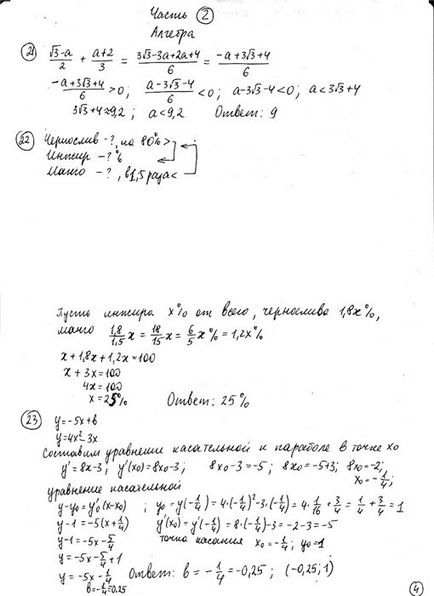 Часть 2
Алгебра
21) (√3-a)/2 + (a+2)/3 = (3√3-3a+2a+4)/6 = (-a+3√3+4)/6
(-a+3√3+4)/6 > 0; (a-3√3-4)/6 < 0; a-3√3-4<0; a<3√3+4
3√3+4≈9,2; a<9,2 Ответ: 9
22) Чернослив -?, на 80% >
Инжир -? %
Манго -?, в 1,5 раза <
Пусть инжира x% от всего, чернослива 1,8x%,
манго (1,8/1,5)x = (18/15)x = (6/5)x% = 1,2x%
x+1,8x+1,2x=100
x+3x=100
4x=100
x=25% Ответ: 25%
23) y=-5x+b
y=4x²-3x
Составим уравнение касательной к параболе в точке x₀
y'=8x-3; y'(x₀)=8x₀-3; 8x₀-3=-5; 8x₀=-5+3; 8x₀=-2;
x₀=-1/4;
уравнение касательной
y-y₀=y'₀(x-x₀); y₀=y(-1/4)=4·(-1/4)²-3·(-1/4)=4·1/16+3/4=1/4+3/4=1
y-1=-5(x+1/4) y'(x₀)=y'(-1/4)=8·(-1/4)-3=-2-3=-5
y-1=-5x-5/4 точка касания x₀=-1/4; y₀=1
y=-5x-5/4+1
y=-5x-1/4 Ответ: b=-1/4=-0,25; (-0,25; 1)
b=-1/4=0,25
4